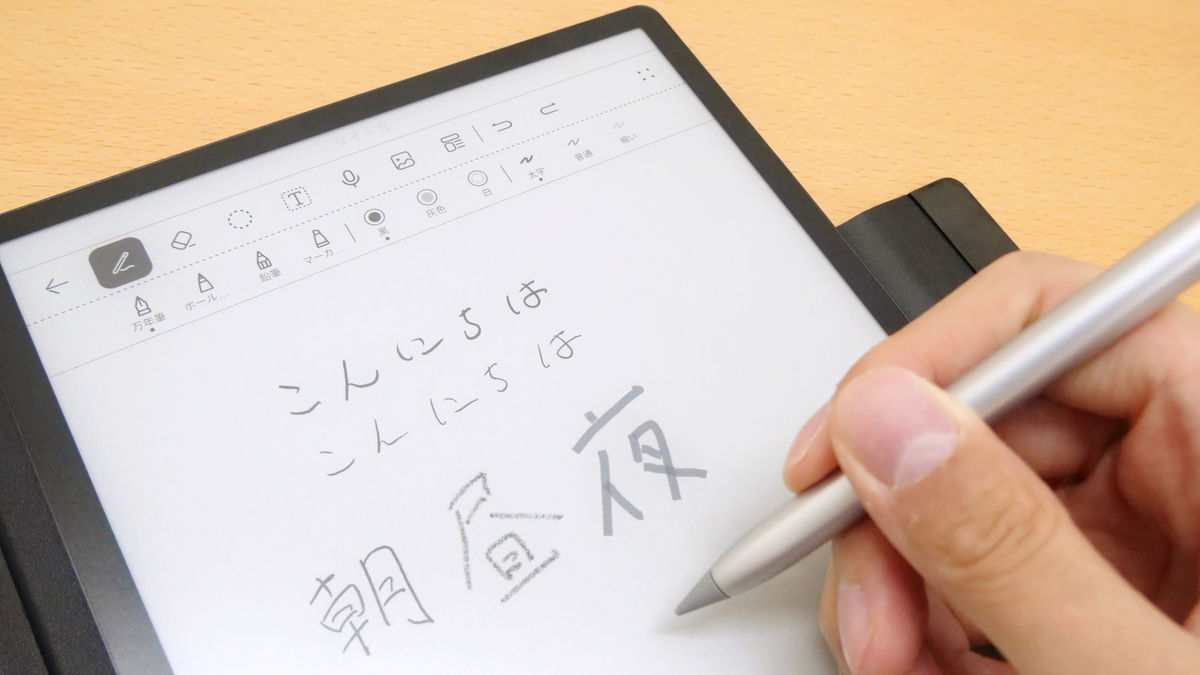 タイトル
T
太字 普通 細い
黒 灰色 白
万年筆 ボール... 鉛筆 マーカ...
こんにちは
こんにちは
朝昼夜